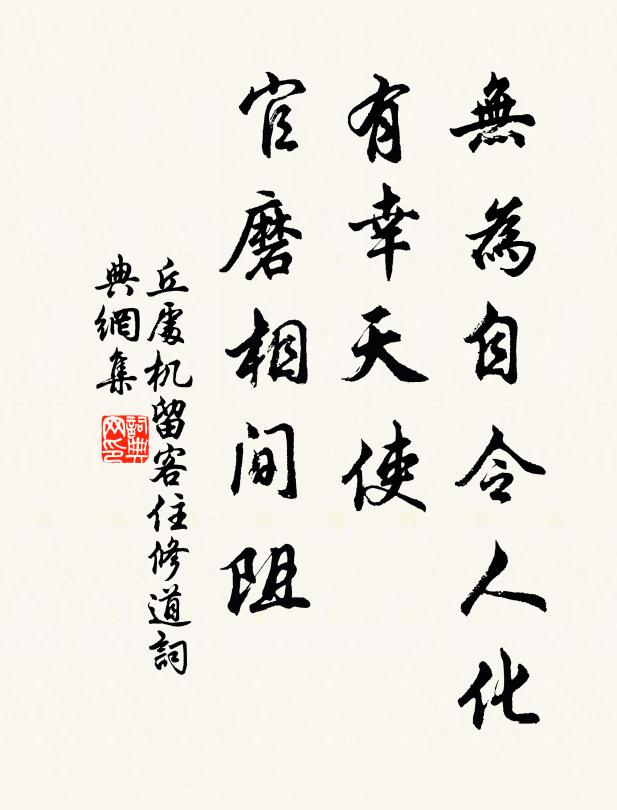 無為自令人化
有幸天使
官磨相間阻
丘處机留客住修道詞
典網集
詞典
网印